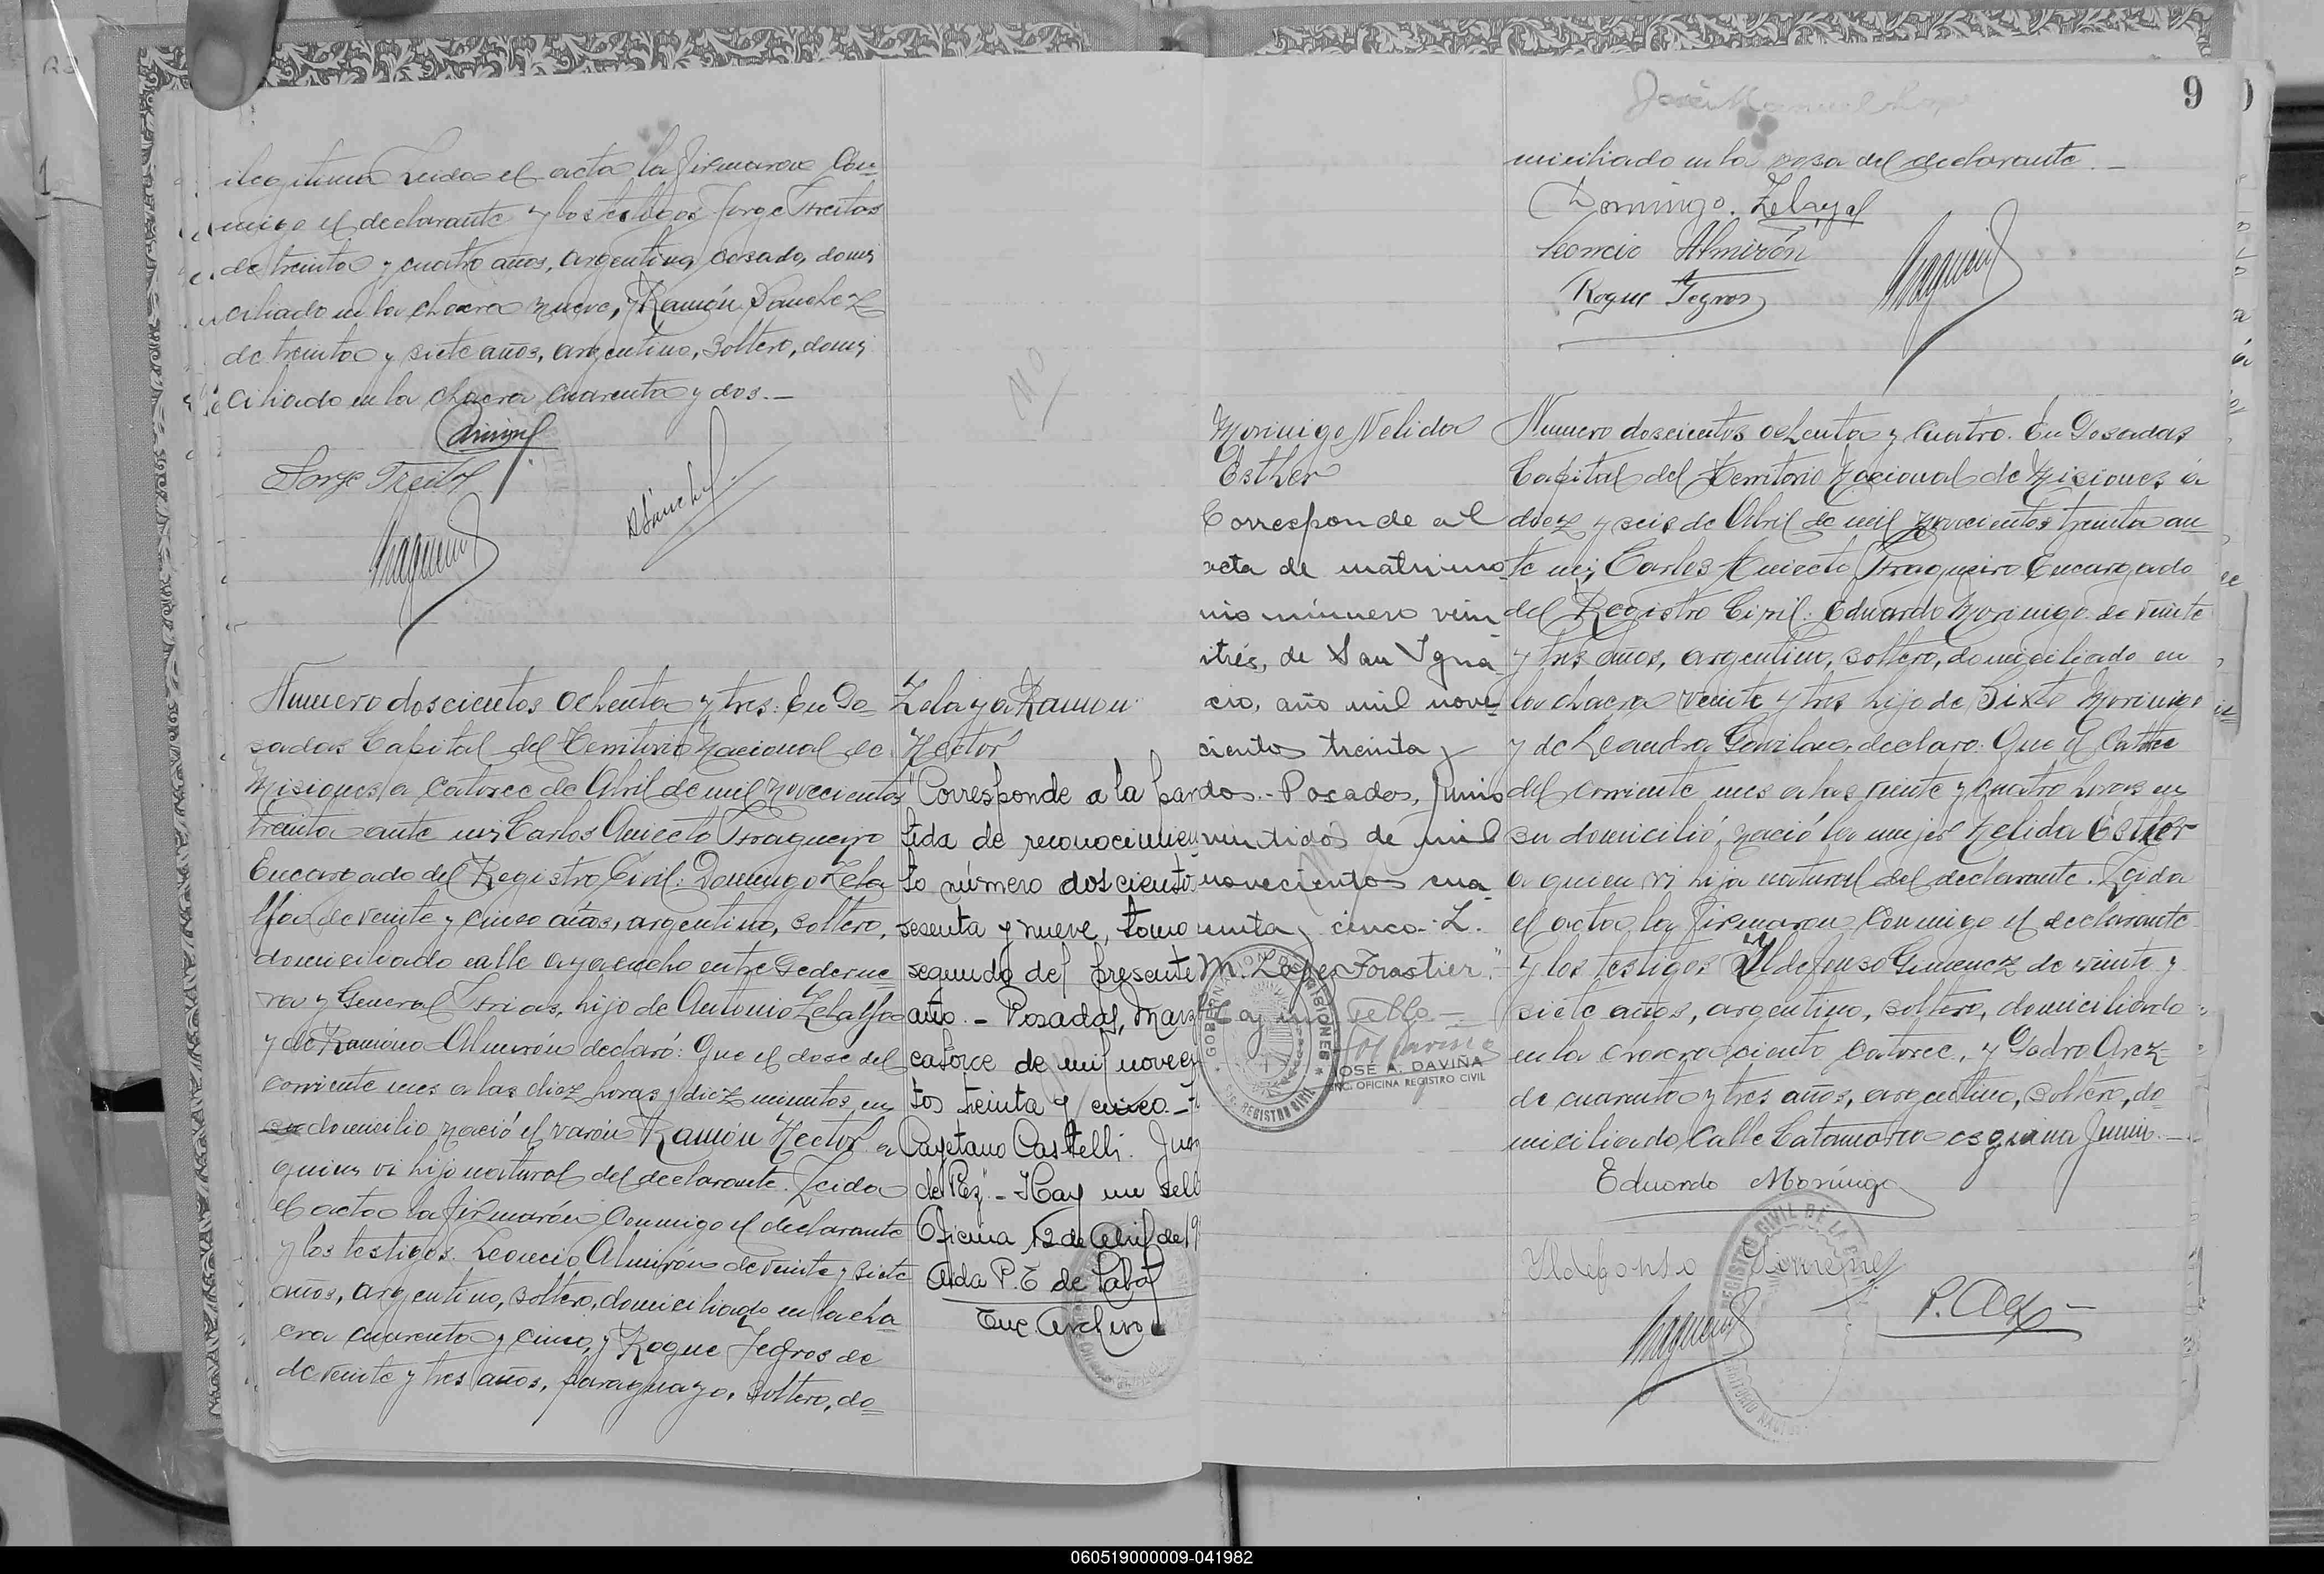 ilegitima Leida el acta la firmaron Con-
migo el declarante y los testigos Jorge Freitas
de treinta y cuatro años, argentino, casado, domi
ciliado en la chacra nueve, y Ramón Sanchez
de treinta y siete años, argentino, soltero, domi
ciliado en la chacra Cuarenta y dos.—
Jorge Freitas
RSánchez
Numero doscientos ochenta y tres: En Po-
sadas Capital del Territorio Nacional de
Misiones a catorce de Abril de mil novecientos
treinta ante mi Carlos Aniceto Fragueyro
Encargado del Registro Civil: Domingo Zela
lla de veinte y cinco años, argentino, soltero,
domiciliado calle ayacucho entre Pederne
ra y General Frias, hijo de Antonio Zelalla
y de Ramona Almirón declaró: Que el dose del
corriente mes a las diez horas y diez minutos, en
su domicilio nació el varón Ramón Hector a
quien vi hijo natural del declarante. Leida
el acta la firmarón Conmigo el declarante
y los testigos. Leoncio Almirón de veinte y siete
años, argentino, soltero, domiciliado en la cha
cra cuarenta y cinco, y Roque Yegros de
de veinte y tres años, paraguayo, soltero, do=
Zelaya Ramon
Hector
"Corresponde a la par
tida de reconocimien
to número doscientos
sesenta y nueve, tomo
segundo del presente
año.- Posadas, Marz
catorce de mil novecien
tos treinta y cinco.-
Cayetano Castelli. Juez
de Paz".- Hay un sell
Oficina 12 de Abril de 19
Aida P. E de
Enc. Archivo
9
miciliado en la casa del declarante.—
Domingo. Zelaya
Leoncio Almirón
Roque Yegros
Morinigo Nelida
Esther
Corresponde al
acta de matrimo
nio número vein
titrés, de San Igna
cio, año mil nove
cientos treinta y
dos.- Posadas, Junio
veintidos de mil
novecientos cua
renta y cinco.- L.
M. Lopez Forastier."
Hay un sello.—
GOBERNACION DE MISIONES
REGISTRO CIVIL
JOSÉ A. DAVIÑA
ENC. OFICINA REGISTRO CIVIL
Numero doscientos ochenta y cuatro. En Posadas
Capital del Territorio Nacional de Misiones a
diez y seis de Abril de mil novecientos treinta an-
te mi, Carlos Aniceto Fragueiro Encargado
del Registro Civil: Eduardo Morinigo de veinte
y tres años, argentino, soltero, domiciliado en
la chacra veinte y tres hijo de Sixto Morinigo
y de Leandra Gavilan, declaro: Que el Catorce
del corriente mes a las veinte y cuatro horas en
su domicilió, nació la mujer Nelida Esther
a quien vi hija natural del declarante. Leida
el acta la firmaron Conmigo el declarante
y los testigos Ildefonso Gimenez de veinte y
siete años, argentino, soltero, domiciliado
en la chacra ciento catorce, y Pedro Arez
de cuarenta y tres años, argentino, soltero, do-
miciliado Calle Catamarca esquina Junin.—
Eduardo Morinigo
Ildefonso Gimenez
060519000009-041982